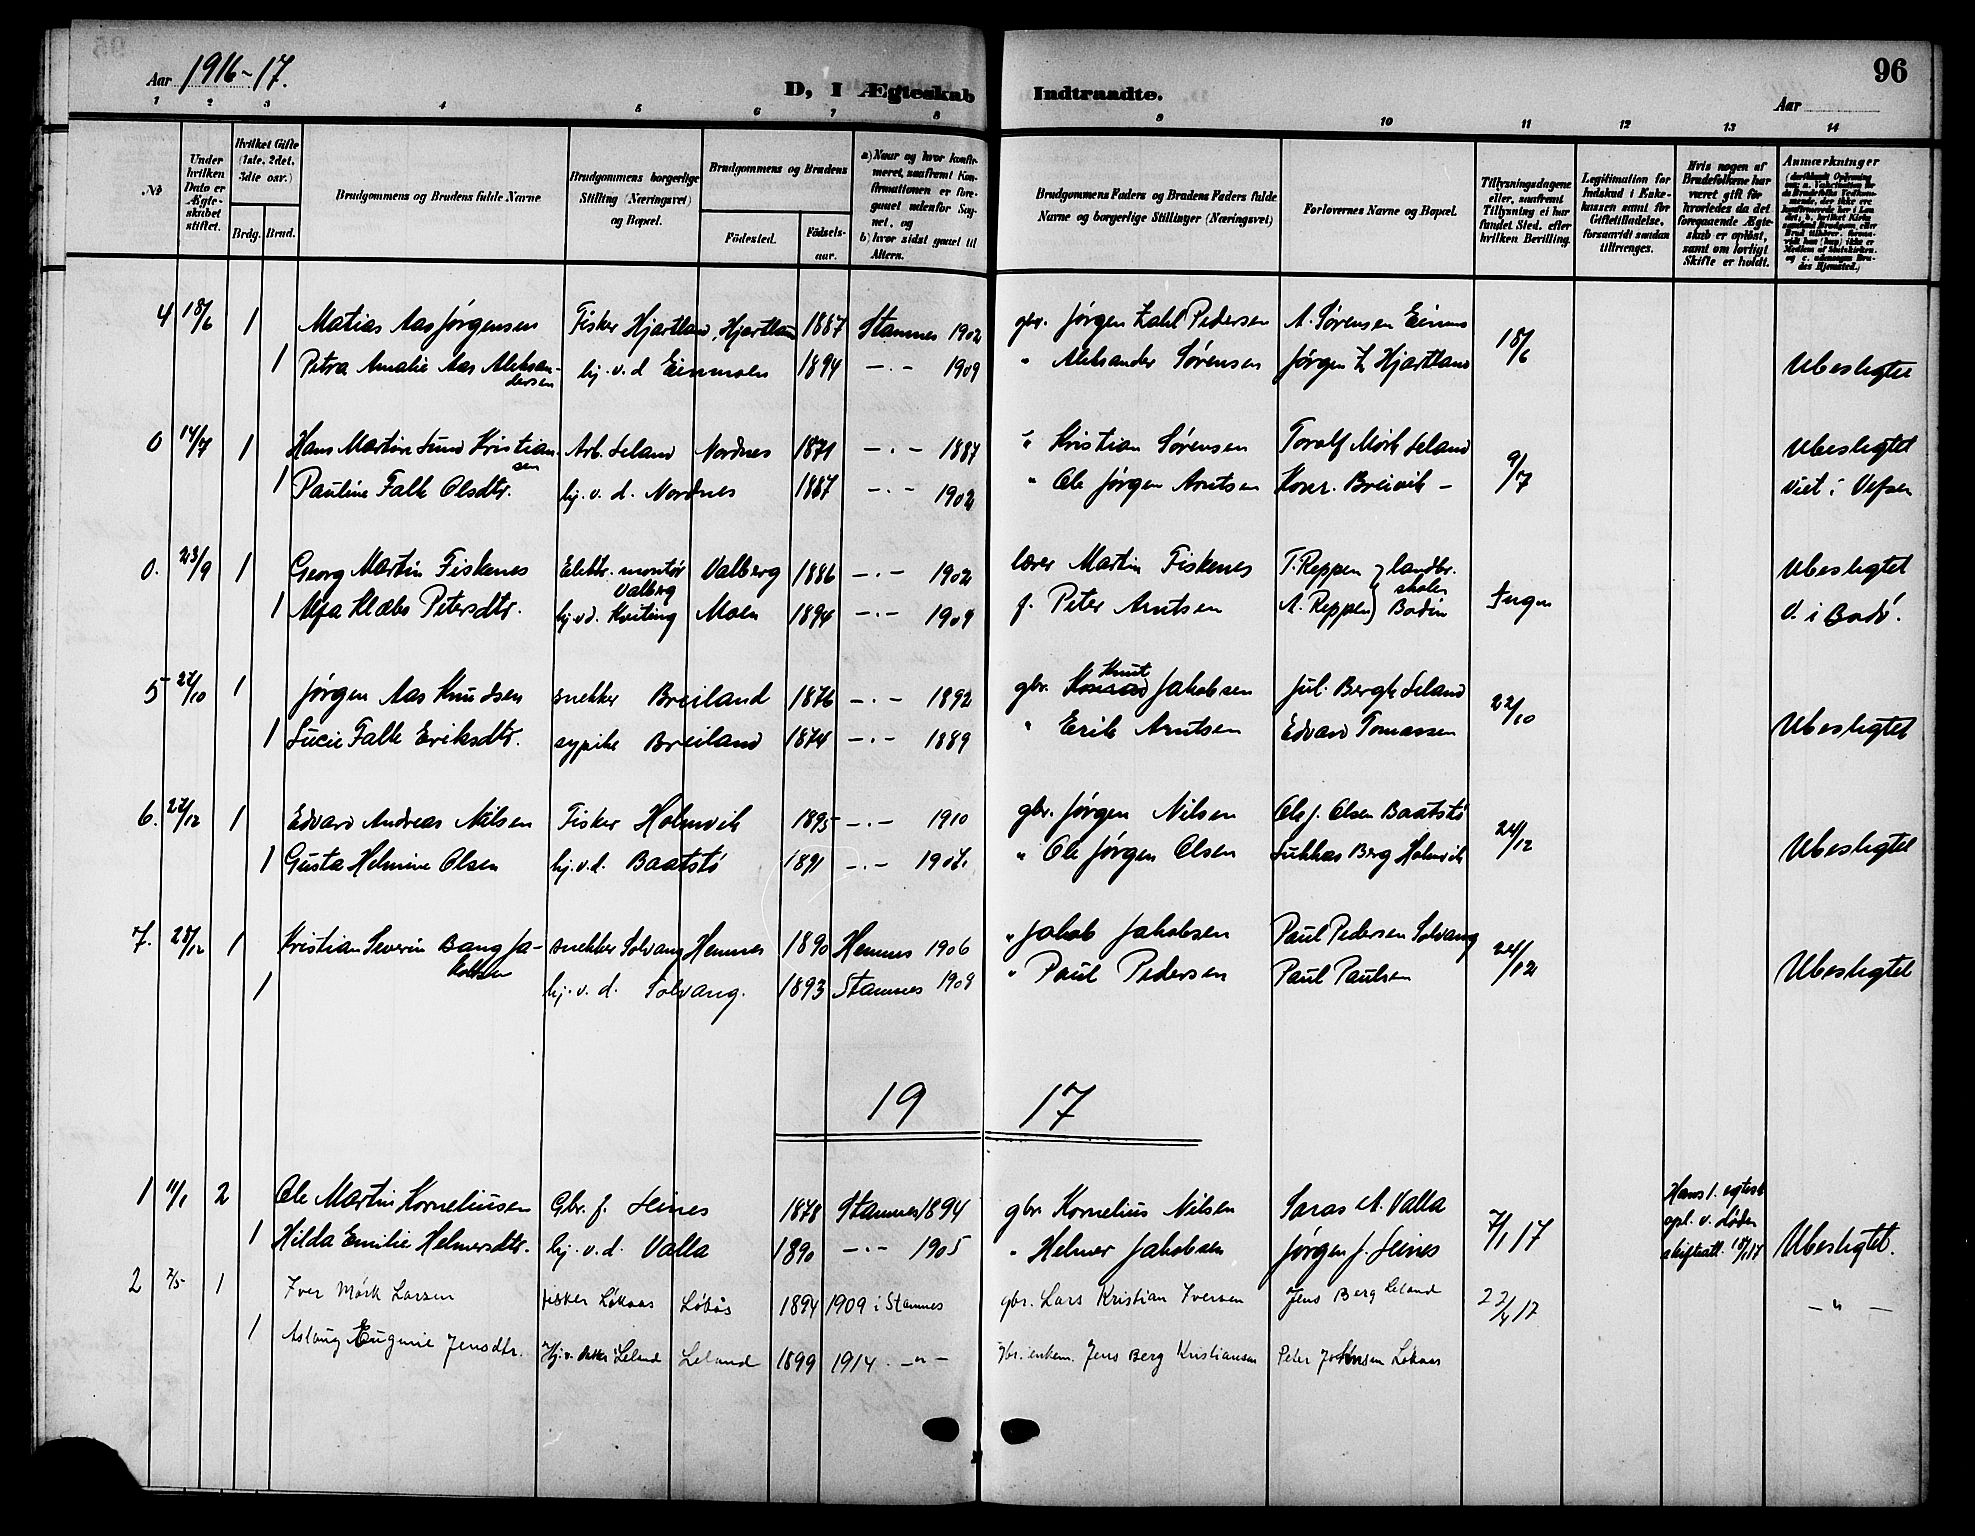 Aar 1916-17.
D, I Ægteskab Indtraadte.
96
Aar
1 2 3 4 5 6 7 8 9 10 11 12 13 14
No
Under hvilken Dato er Ægteskabet stiftet.
Hvilket Gifte (1ste, 2det, 3die osv.)
Brdg. Brud.
Brudgommens og Brudens fulde Navne
Brudgommens borgerlige Stilling (Næringsvei) og Bopæl.
Brudgommens og Brudens
Fødested.
Fødselsaar.
a) Naar og hvor konfirmeret, saafremt Konfirmationen er foregaaet udenfor Sognet, og
b) hvor sidst gaaet til Alters.
Brudgommens Faders og Brudens Faders fulde Navne og borgerlige Stillinger (Næringsvei)
Forlovernes Navne og Bopæl.
Tillysningsdagene eller, saafremt Tillysning ei har fundet Sted, efter hvilken Bevilling.
Legitimation for Indskud i Enkekassen samt for Giftetilladelse, forsaavidt saadan tiltrænges.
Hvis nogen af Brudefolkene har været gift før hvorledes da det foregaaende Ægteskab er opløst, samt om lovligt Skifte er holdt.
Anmærkninger
4 18/6 1 Matias Aas Jørgensen Fisker Hjartland, Hjartland 1887 Stamnes 1902 gbr. Jørgen Zahl Pedersen A. Sørensen Einmo 18/6
1 Petra Amalie Aas Aleksandersen hj. v. d Einmoen 1894 -.- 1909 " Aleksander Sørensen Jørgen Z Hjartland Ubeslegtet
0 14/7 1 Hans Martin Sund Kristiansen Arb. Leland Nordnes 1871 -.- 1887 " Kristian Sørensen Toralf Mørk Leland 9/7 Ubeslegtet
1 Pauline Falk Olsdtr. hj. v. d. Nordnes 1887 -.- 1902 " Ole Jørgen Arntsen Konr. Breivik - viet i Vefsn
0. 23/9 1 Georg Martin Fiskenes Elektr. montør Valberg Valberg 1886 -.- 1902 lærer Martin Fiskenes T. Reppen landbr. skolen Ubeslegtet
1 Alfa Klæbo Petersdtr. hj. v d. Kviting Moen 1894 -.- 1909 f. Peter Arntsen A. Reppen Bodin Ingen V. i Bodø.
5 27/10 1 Jørgen Aas Knudsen snekker Breiland 1876 -.- 1892 gbr. Knut Jakobsen Jul. Bergh Leland 22/10
1 Lucie Falk Eriksdtr. sypike Breiland 1874 -.- 1889 " Erik Arntsen Edvard Tomassen Ubeslegtet
6. 27/12 1 Edvard Andreas Nilsen Fisker Holmvik 1895 -.- 1910 gbr. Jørgen Nilsen Ole J. Olsen Baatstø 24/12
1 Gusta Helmine Olsen hj. v. d. Baatstø 1891 -.- 1907. " Ole Jørgen Olsen Lukkas Berg Holmvik Ubeslegtet
7. 28/12 1 Kristian Severin Bang Jakobsen snekker Solvang Hemnes 1890 Hemnes 1906 " Jakob Jakobsen Paul Pedersen Solvang 24/12
1 hj. v. d. Solvang. 1893 Stamnes 1908 " Paul Pedersen Paul Paulsen Ubeslegtet
19 17
1 11/1 2 Ole Martin Korneliusen Gbr. f. Leines 1878 Stamnes 1894 gbr. Kornelius Nilsen Saras A. Valla 7/1 17 Hans 1. egtesk opl. v. døden skifteatt. 10/1 17
1 Hilda Emilie Helmersdtr. hj. v. d. Valla 1890 -.- 1905 " Helmer Jakobsen Jørgen J. Leines Ubeslegtet.
2 2/5 1 Iver Mørk Larsen fisker Løkaas Løkås 1894 1909 i Stamnes gbr. Lars Kristian Iversen Jens Berg Leland 22/4 17 - " -
1 Aslaug Eugenie Jensdtr. Hj. v. Leland Leland 1899 1914. -"- gbr. enkem. Jens Berg Kristiansen Peter Johnsen Løkaas